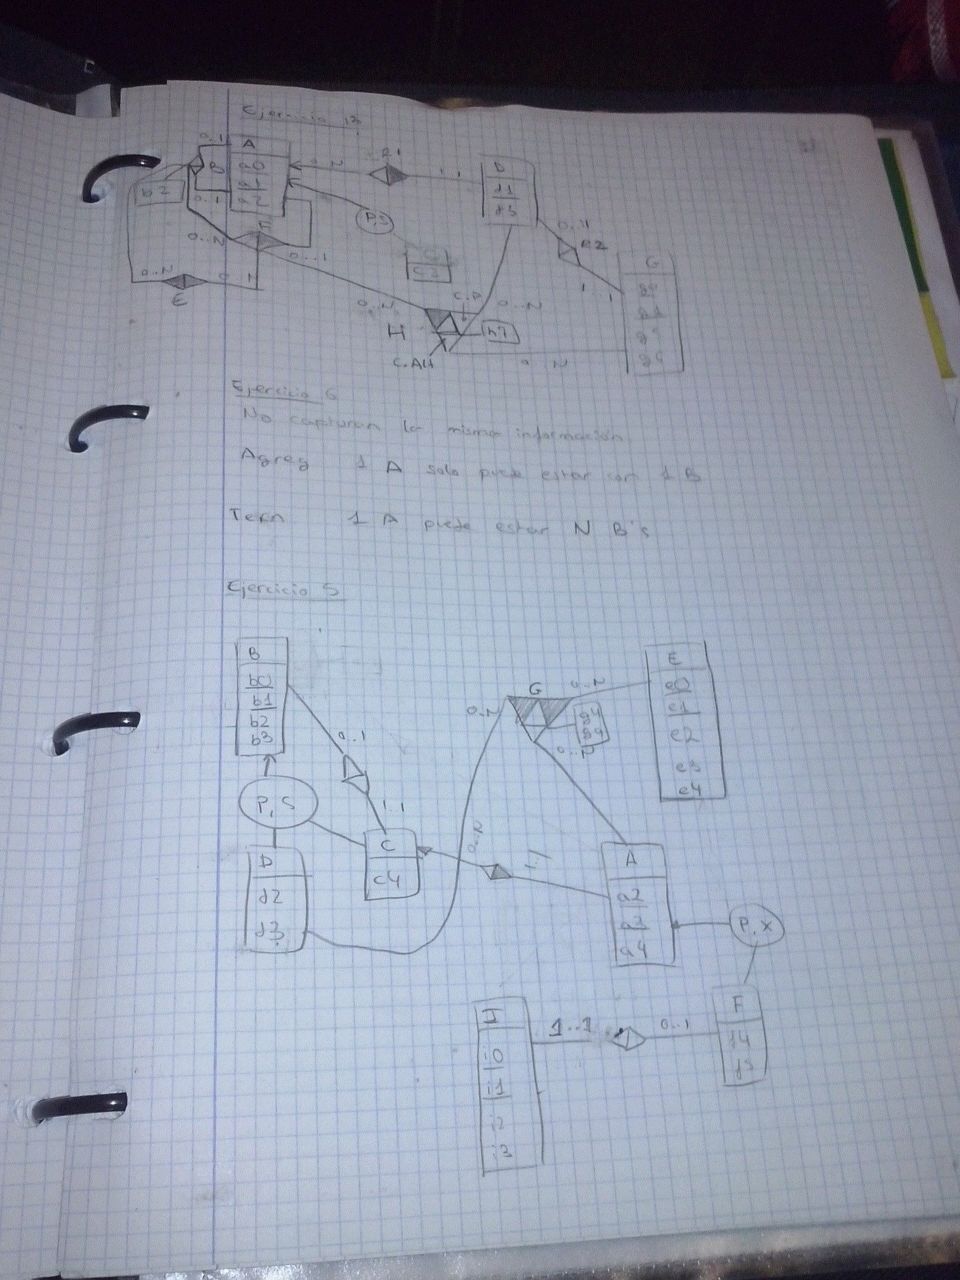 Ejercicio 13
0..1
A
a0
a1
a2
B
b2
0..1
0..N
R1
1..1
D
d1
d3
P,S
0..1
R2
1..1
G
F
0..N
0..1
0..N
0..1
E
0..N
C.P
0..N
H
h7
C.Alt
0..N
Ejercicio 6
No capturan la misma información
Agreg 1 A solo puede estar con 1 B
Tern 1 A puede estar N B's
Ejercicio 5
B
b0
b1
b2
b3
0..1
1..1
P,S
D
d2
d3
C
c4
0..N
G
0..N
0..N
E
e0
e1
e2
e3
e4
0..N
1..1
A
a2
a3
a4
P,X
F
f4
0..1
1..1
I
i0
i1
i2
i3